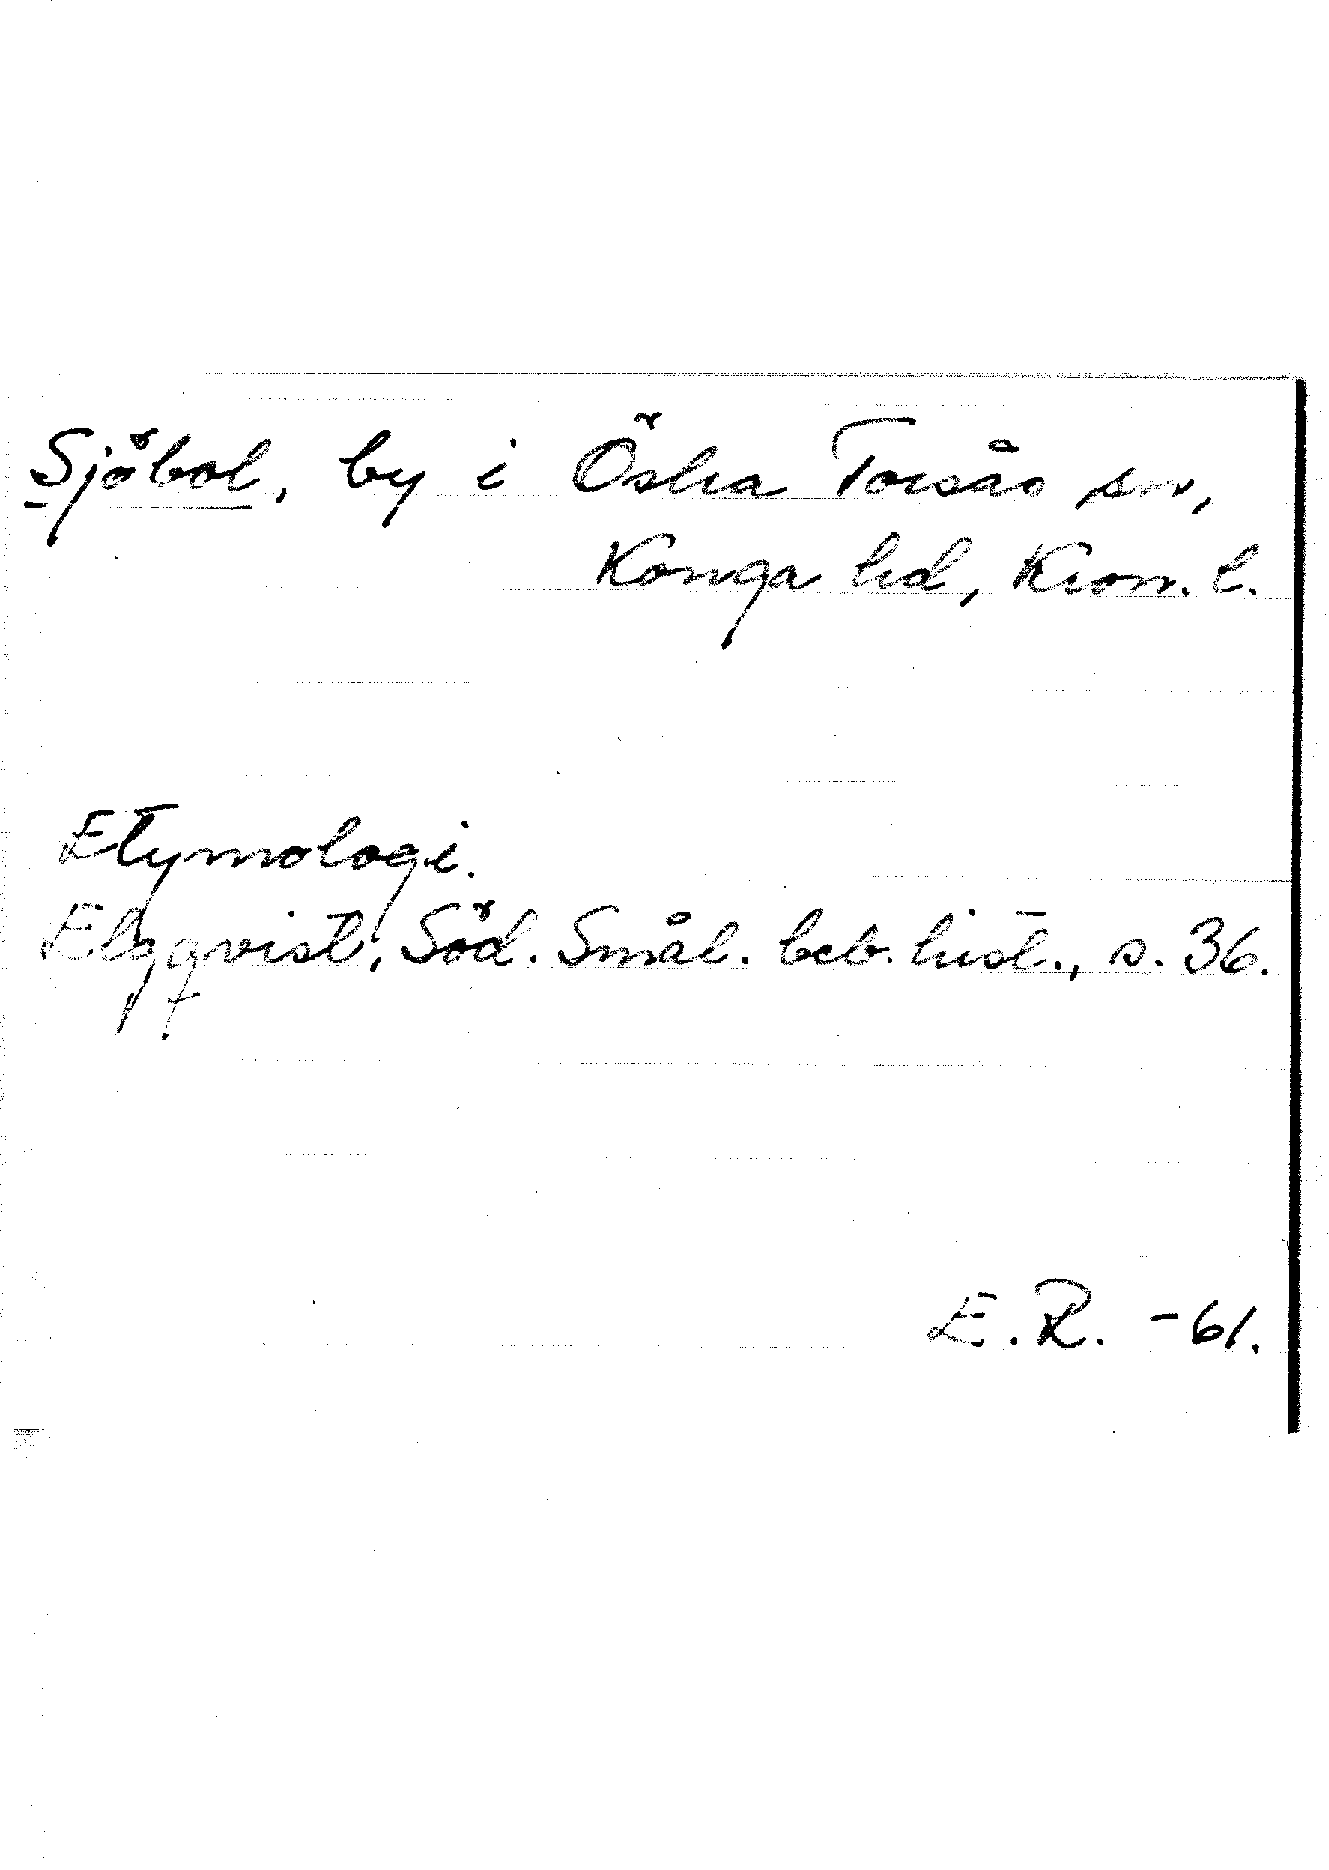 Sjöbol, by i Östra Torsås sn,
Konga hd, Kron. l.
Etymologi.
Elgqvist, Söd. Smål. beb. hist., s. 36.
E. R. -61.